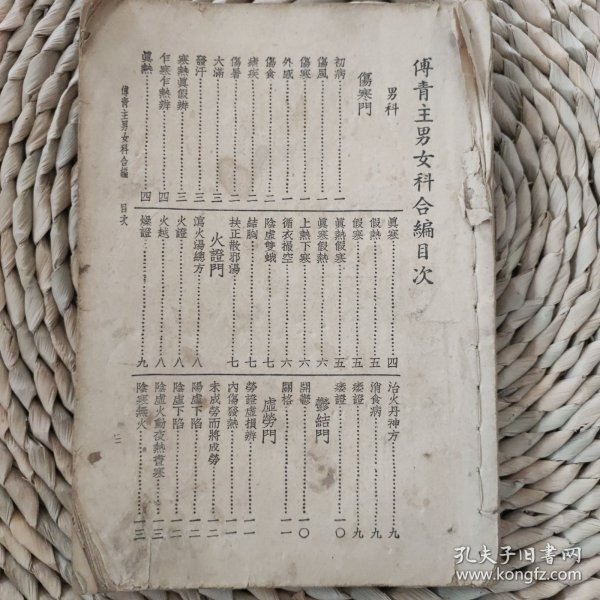 傅青主男女科合編目次
男科
傷寒門
初病……一
傷風……一
傷寒……一
外感……一
傷食……二
瘧疾……二
傷暑……二
大滿……三
發汗……三
寒熱真假辨……三
乍寒乍熱辨……四
真熱……四
真寒……四
假熱……五
假寒……五
真熱假寒……五
真寒假熱……六
上熱下寒……六
循衣撮空……六
陰虛雙蛾……七
結胸……七
扶正散邪湯……七
火證門
瀉火湯總方……八
火證……八
火越……八
燥證……九
治火丹神方……九
消食病……九
痿證……九
痿證……一〇
鬱結門
開鬱……一〇
關格……一一
虛勞門
勞證虛損辨……一一
內傷發熱……一一
未成勞而將成勞……一二
陽虛下陷……一二
陰虛下陷……一二
陰虛火動夜熱晝寒……一三
陰寒無火……一三
傅青主男女科合編 目次
孔夫子旧书网
www.kongfz.com